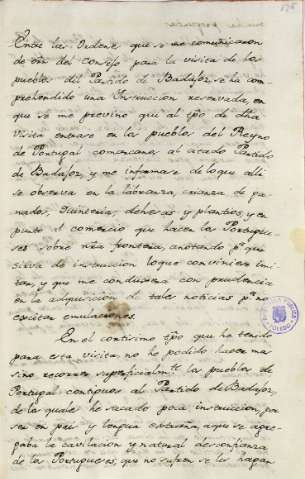 Entre las Ordenes que se me comunicaron
de orn del Consejo para la visita de los
pueblos del Partido de Badajoz se ha com
prehendido una Instruccion reservada, en
que se me previno que al tpo de dha
visita entrase en los pueblos del Reyno
de Portugal comarcanos al citado Partido
de Badajoz, y me informase de lo que alli
se observa en la labranza, crianza de ga
nados, dehesas y plantios, y en
punto al comercio que hacen los Portugue
ses sobre nra frontera, anotando pa que
sirva de instruccion lo que conviniese imi
tar, y que me conduxera con prudencia
en la adquisicion de tales noticias pa no
excitar emulaciones.
En el cortisimo tpo que he tenido
para esta visita no he podido hacer mas
sino recorrer superficialmte los pueblos de
Portugal contiguos al Partido de Badajoz,
de los quales he sacado poca instruccion, por
ser en pais y lengua estraña, a que se agre
gaba la cavilacion y natural desconfianza
de los Portugueses, que no sufren se les hagan